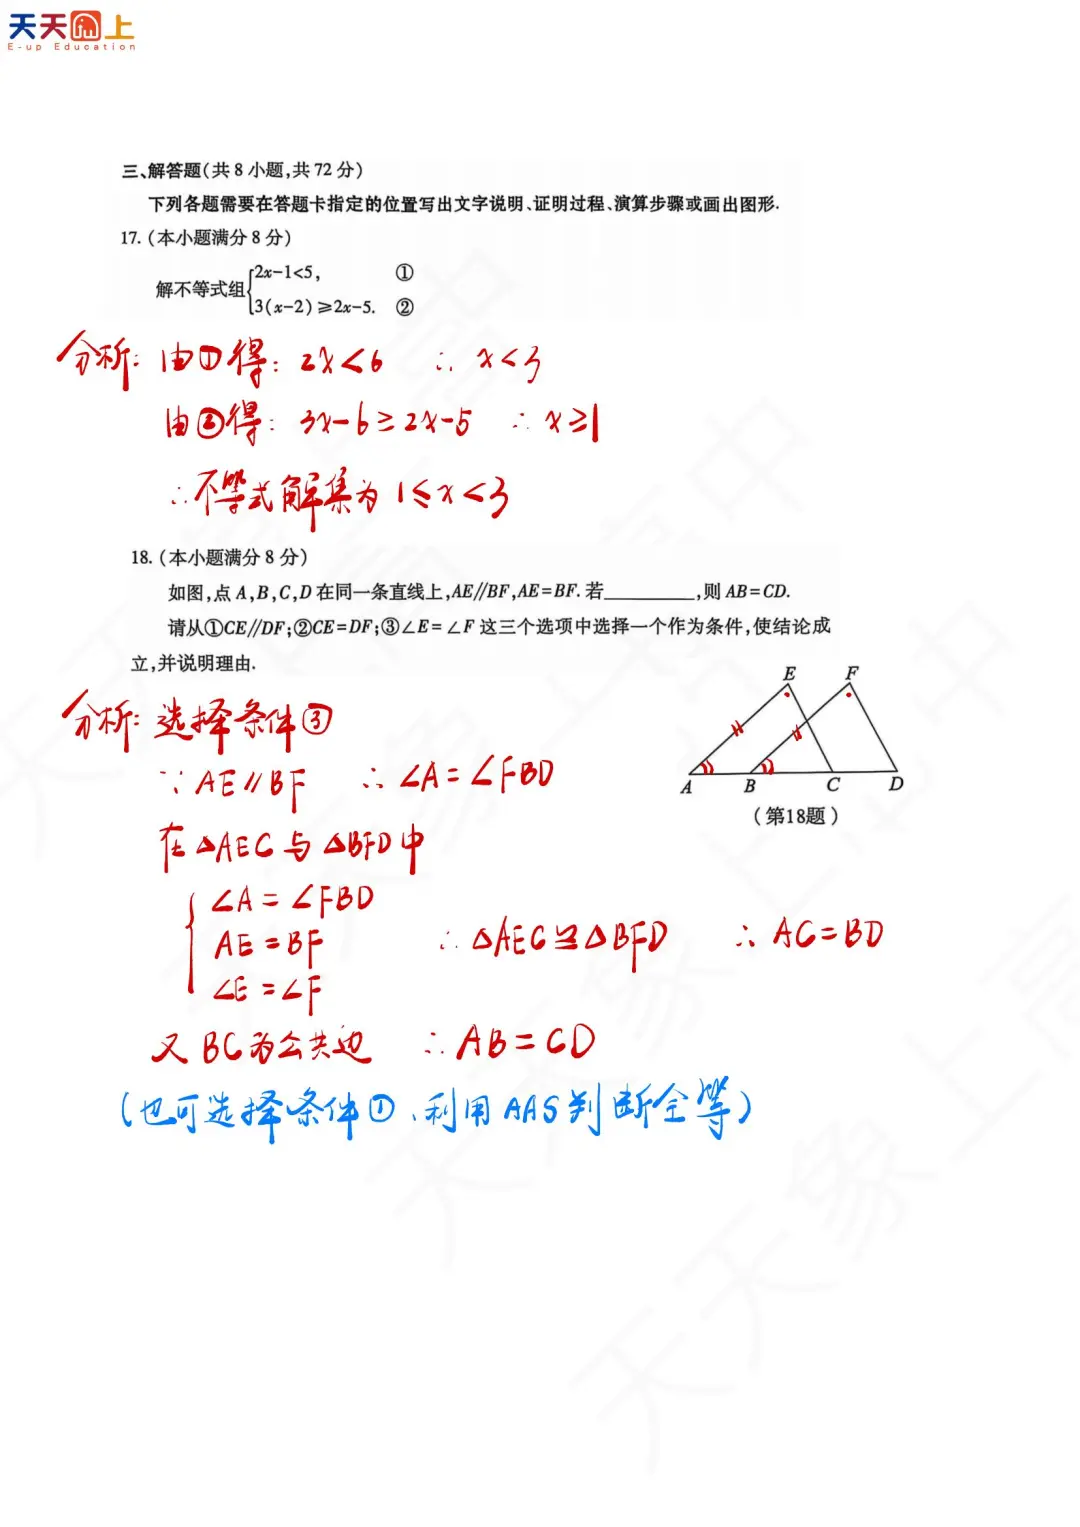 天天向上
E-up Education
三、解答题(共8小题,共72分)
下列各题需要在答题卡指定的位置写出文字说明、证明过程、演算步骤或画出图形.
17.(本小题满分8分)
解不等式组{2x-1<5, ①
3(x-2)≥2x-5. ②
分析: 由①得: 2x<6 ∴ x<3
由②得: 3x-6≥2x-5 ∴ x≥1
∴不等式解集为 1≤x<3
18.(本小题满分8分)
如图,点A,B,C,D在同一条直线上,AE∥BF,AE=BF.若________,则AB=CD.
请从①CE∥DF;②CE=DF;③∠E=∠F这三个选项中选择一个作为条件,使结论成
立,并说明理由.
E F
A B C D
(第18题)
分析: 选择条件③
∵ AE∥BF ∴ ∠A=∠FBD
在△AEC与△BFD中
{∠A=∠FBD
AE=BF ∴ △AEC≌△BFD ∴ AC=BD
∠E=∠F
又BC为公共边 ∴ AB=CD
(也可选择条件①、利用AAS判断全等)
天天象上高中